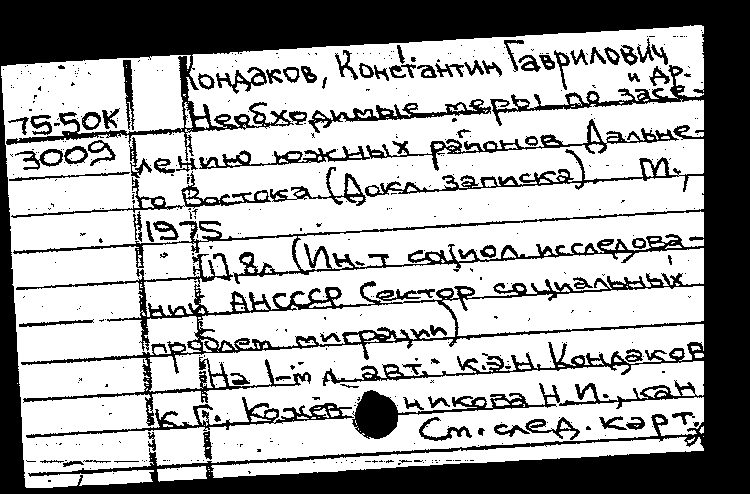 Кондаков, Константин Гаврилович
и др.
75-50К Необходимые меры по засе-
3009 лению южных районов Дальне-
го Востока (Докл. записка). М.,
1975.
[1], 8л (Ин-т социол. исследова-
ний АНСССР Сектор социальных
проблем миграции)
На 1-м л. авт.: к.э.н. Кондаков
К.Г., Кожевникова Н.И., кан
См. след. карт.